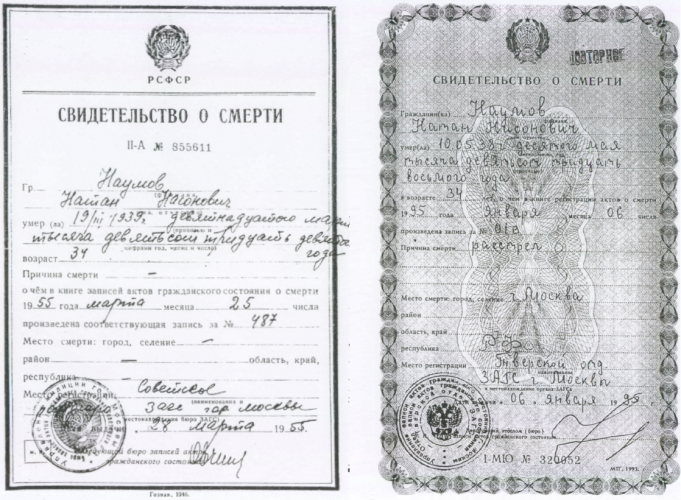 РСФСР
СВИДЕТЕЛЬСТВО О СМЕРТИ
II-А № 855611
Гр. Наумов
Натан Насонович
умер (ла) 19/III 1939г. девятнадцатого марта
тысяча девятьсот тридцать девятого
года
возраст 34
Причина смерти —
о чём в книге записей актов гражданского состояния о смерти
1955 года марта месяца 25 числа
произведена соответствующая запись за № 487
Место смерти: город, селение —
район — область, край,
республика —
Место регистрации Советское
Загс гор Москвы
28 марта 1955
бюро записей актов
гражданского состояния
Гознак. 1946.
ПОВТОРНОЕ
СВИДЕТЕЛЬСТВО О СМЕРТИ
Гражданин(ка) Наумов
Натан Нисонович
умер(ла) 10.05.38г десятого мая
тысяча девятьсот тридцать
восьмого года
в возрасте 34 лет, о чем в книге регистрации актов о смерти
1995 года января месяца 06 числа
произведена запись за №
Причина смерти расстрел
Место смерти: город, селение г. Москва
район
область, край
республика
Место регистрации Тверской отд.
ЗАГС г. Москвы
06 января 1995
I-МЮ № 320052
МПГ. 1993.